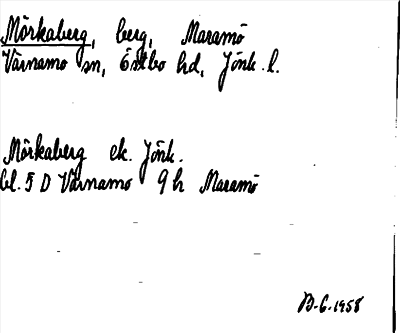 Mörkaberg, berg, Maramö
Värnamo sn, Östbo hd, Jönk. l.
Mörkaberg ek. Jönk.
bl. 5 D Värnamo 9 h Maramö
B-G. 1958